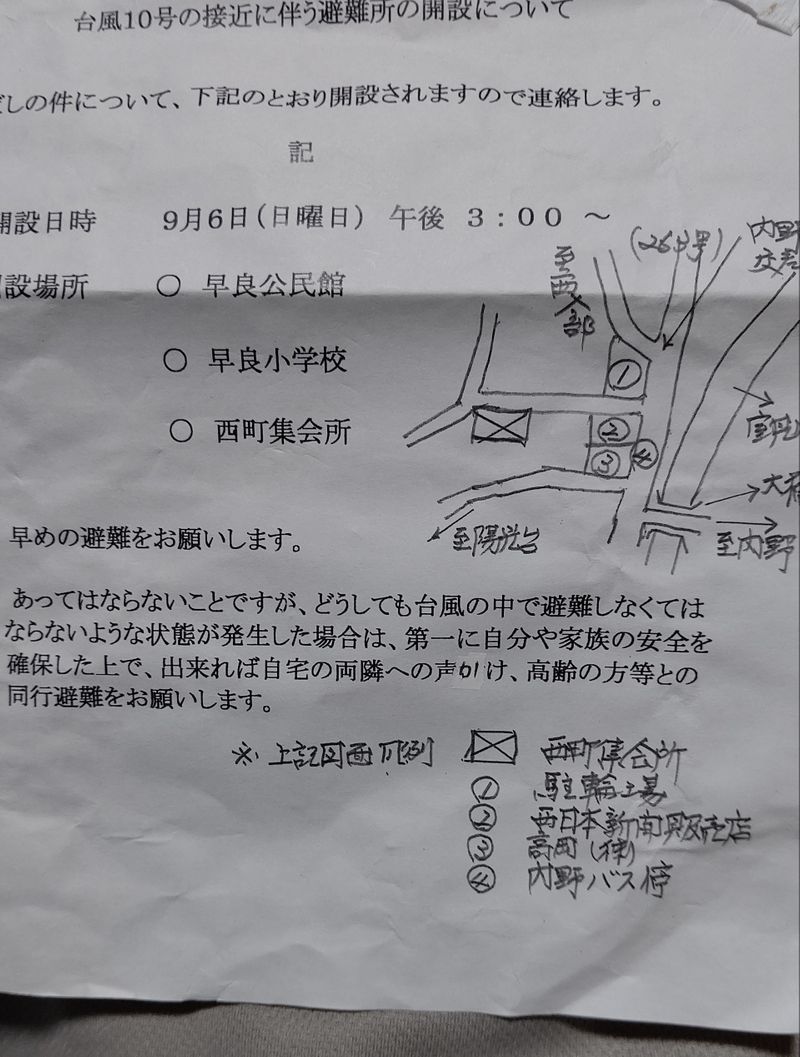 台風10号の接近に伴う避難所の開設について
だしの件について、下記のとおり開設されますので連絡します。
記
開設日時 9月6日(日曜日) 午後 3:00 ~
設場所 ○ 早良公民館
○ 早良小学校
○ 西町集会所
(263号)
内野
至西入部
①
②
③
④
至陽光台
至内野
早めの避難をお願いします。
あってはならないことですが、どうしても台風の中で避難しなくては
ならないような状態が発生した場合は、第一に自分や家族の安全を
確保した上で、出来れば自宅の両隣への声かけ、高齢の方等との
同行避難をお願いします。
※上記図面凡例 西町集会所
① 駐輪場
② 西日本新聞販売店
③ 高田(株)
④ 内野バス停